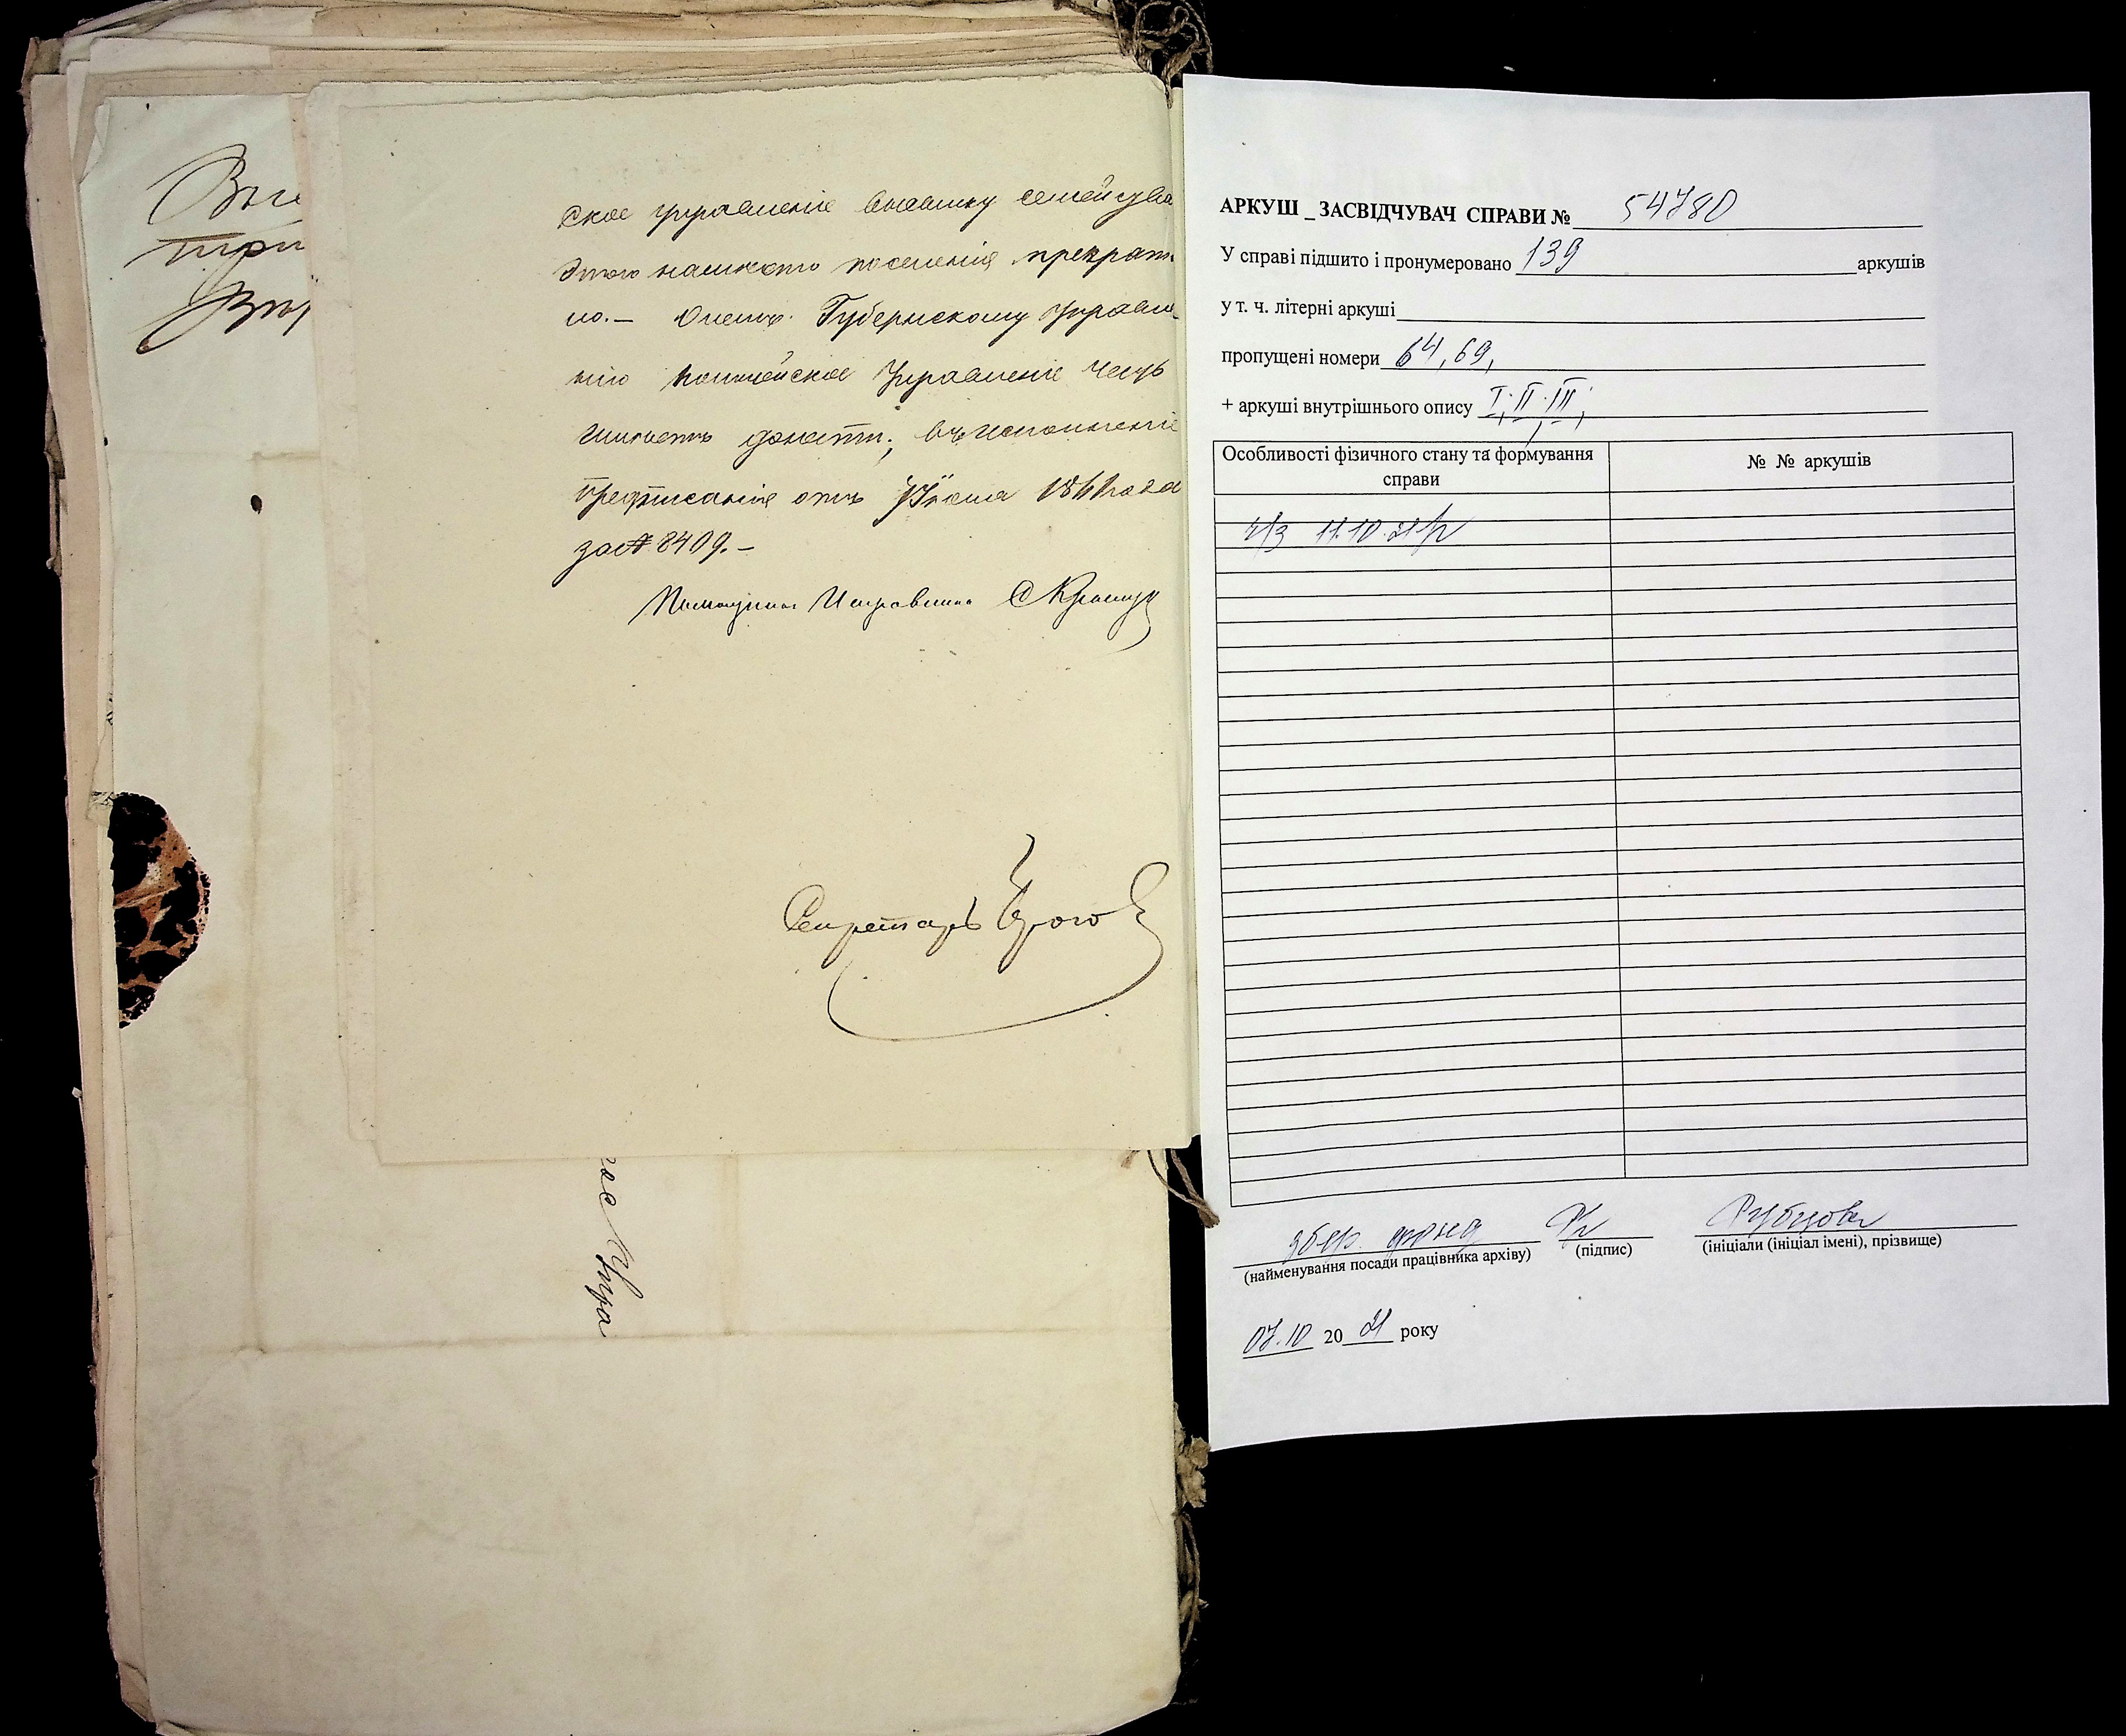 Выс
при
Вѣд
ское управленіе высылку семействъ
этого на мѣсто поселенія прекрати
ло. — О чемъ Губернскому Управле-
нію Полицейское Управленіе честь
имѣетъ донести, въ исполненіе
предписанія отъ Іюня
за № 8409. —
Помощникъ Исправника
Секретарь
ое Упра
АРКУШ _ ЗАСВІДЧУВАЧ СПРАВИ № 54780
У справі підшито і пронумеровано 139 аркушів
у т. ч. літерні аркуші
пропущені номери 64, 69,
+ аркуші внутрішнього опису I, II, III,
Особливості фізичного стану та формування справи
№ № аркушів
ч/з 11.10.21
зберіг. фонд Рубцова
(найменування посади працівника архіву) (підпис) (ініціали (ініціал імені), прізвище)
07.10 20 21 року